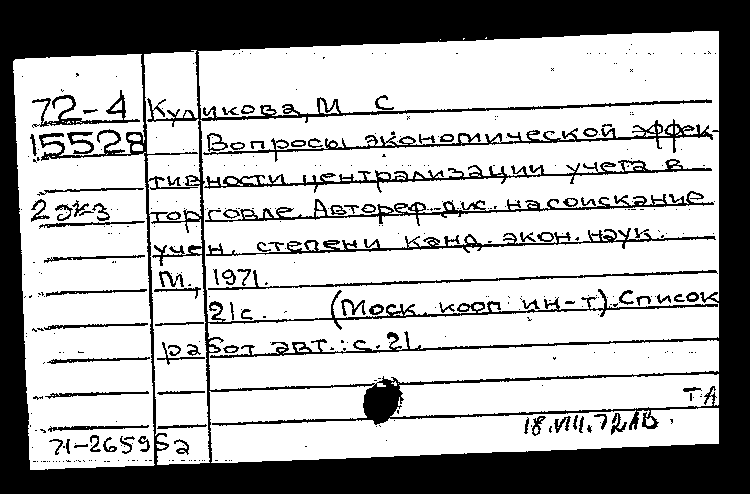 72-4 Куликова, М С
15528 Вопросы экономической эффек-
тивности централизации учета в
2 экз торговле. Автореф. дис. на соискание
учен. степени канд. экон. наук.
М., 1971.
21с. (Моск. кооп ин-т). Список
работ авт.: с. 21.
ТА
18.VIII.72
71-26595а